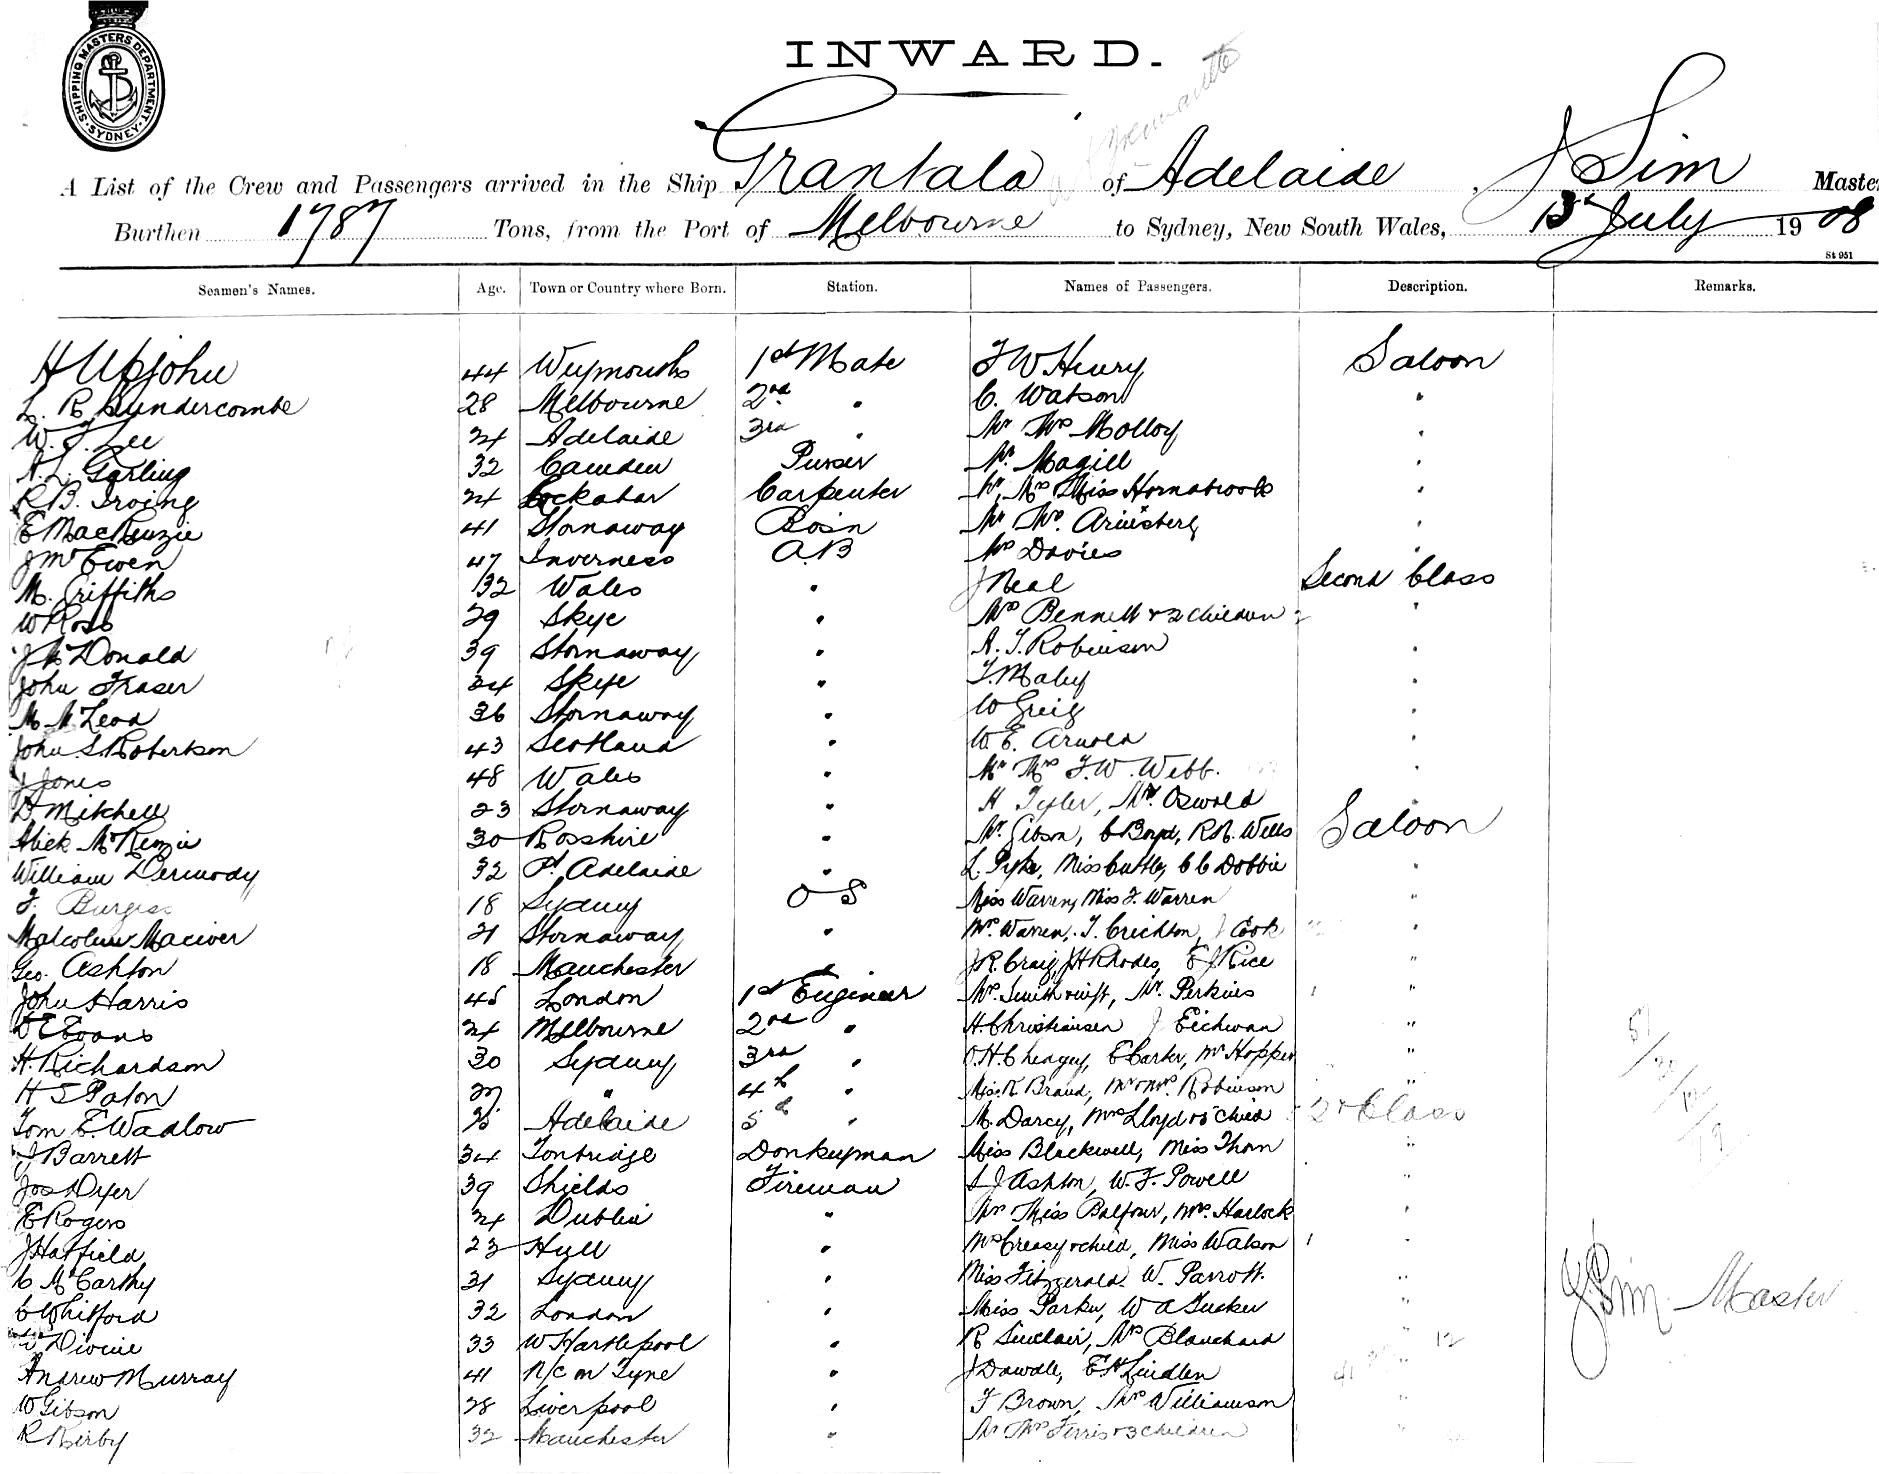 SHIPPING MASTERS DEPARTMENT · SYDNEY ·
INWARD.
A List of the Crew and Passengers arrived in the Ship Grantala of Adelaide, J Sim Maste
Burthen 1787 Tons, from the Port of Melbourne to Sydney, New South Wales, 13 July 1908
St 951
Seamen's Names. Age. Town or Country where Born. Station. Names of Passengers. Description. Remarks.
H Upjohn 44 Weymouth 1st Mate F W Henry Saloon
L. R. Sundercombe 28 Melbourne 2nd " C. Watson "
W. J. Lee 24 Adelaide 3rd " Mr Mrs Molloy "
A. L. Garling 32 Camden Purser Mr. Magill "
R B. Irving 24 Carpenter Mr, Mrs Miss Hornabrook "
E MacKenzie 41 Stornaway Bosn Mr Mrs "
J McEwen 47 Inverness A.B Mrs Davies "
M. Griffiths 32 Wales " J Neal Second Class
W Ross 29 Skye " Mrs Bennett & 2 children "
J McDonald 39 Stornaway " A. J. Robinson "
John Fraser 24 Skye " T. Maley "
M McLeod 36 Stornaway " W Greig "
John S. Robertson 43 Scotland " W. E. Arnold "
J Jones 48 Wales " Mr Mrs F. W. Webb. "
D Mitchell 23 Stornaway " H Tyler, Mr. Oswold "
Mick McKenzie 30 Rosshire " Mr. Gibson, C Boyd, Rob. Wells Saloon
William Dermody 32 Pt Adelaide " L. Pyke, Miss Cuttle, C C Dobbie "
F. Burgess 18 Sydney O S Miss Warren, Miss F. Warren "
Malcolm Maciver 21 Stornaway " Mrs. Warren, T. Crichton, J Cook "
Geo. Ashton 18 Manchester " J R. Craig, J H Rhodes, E J Rice "
John Harris 45 London 1st Engineer Mr. Smith & wife, Mr. Perkins "
D E Evans 24 Melbourne 2nd " H. Christiansen J Eichwan "
H. Richardson 30 Sydney 3rd " E Carter, Mr Hopper "
H S Paton " 4th " Miss K Brand, Mr & Mrs. Robinson "
Tom E. Wadlow Adelaide 5th " M. Darcy, Mrs Lloyd & child 2nd Class
J Barrett 34 Tonbridge Donkeyman Miss Blackwell, Miss Thorn "
Jos Dyer 39 Shields Fireman S J Ashton, W. F. Powell "
E Rogers 24 Dublin " Mr Miss Balfour, Mrs. Harlock "
J Hatfield 23 Hull " Mrs Creasy & child, Miss Watson "
C McCarthy 31 Sydney " Miss Fitzgerald. W. Parrott. "
C Whitford 32 London " Miss Parker, W A Tucker " J. Sim. Master
Divine 33 W Hartlepool " R Sinclair, Mrs Blanchard " 12
Andrew Murray 41 N/C on Tyne " J Dowdle, E H Lindlen "
W Gibson 28 Liverpool " F Brown, Mrs Williamson "
R Kirby 32 Manchester " Mr Mrs Ferris & 3 children "